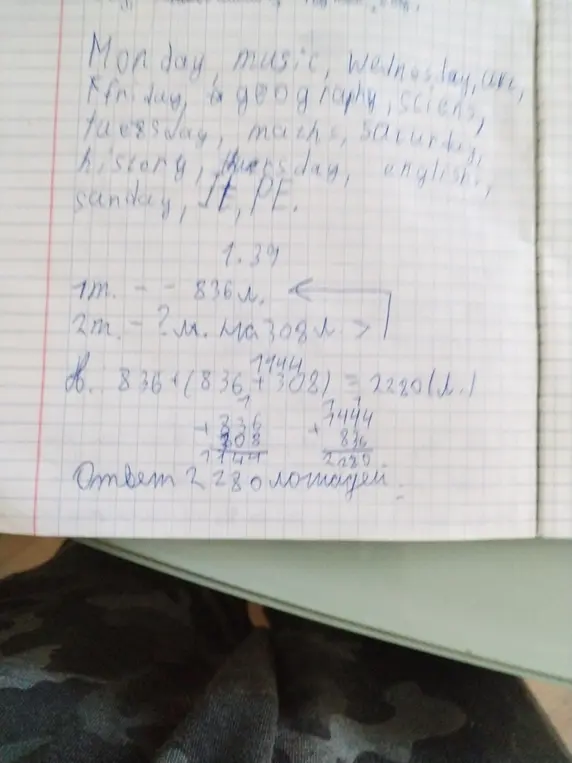 Monday, music, Wednesday, art,
Ffriday, geography, sciens,
tuesday, maths, saturday,
history, thursday, english,
sanday, It, PE.
1.39
1т. - - 836л.
2т. - ? л. на 308л. >
1144
В. 836+(836+308) = 2280(л.)
1 1
+ 836 + 1444
308 836
1144 2280
Ответ 2280 лошадей.